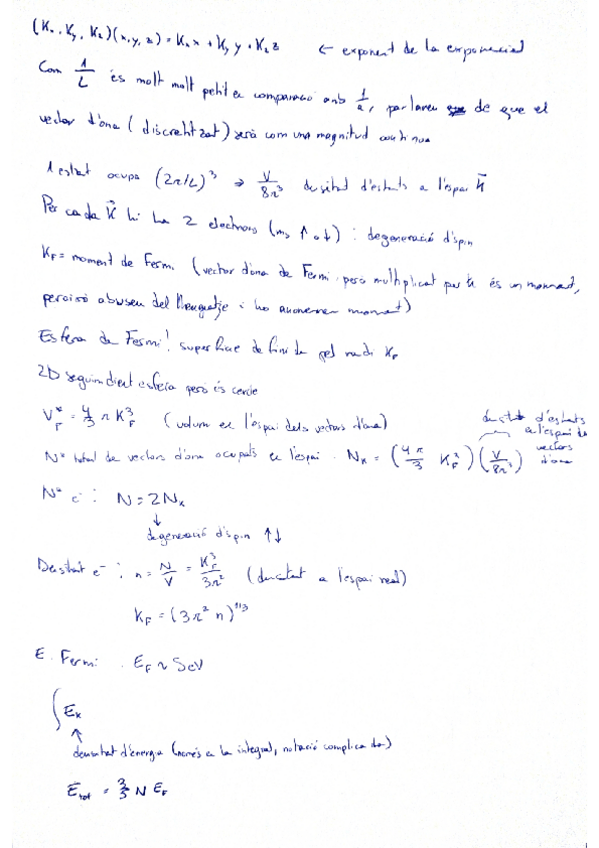 (Kx, Ky, Kz)(x,y,z) = Kx x + Ky y + Kz z ← exponent de la exponencial
Com 1/L és molt molt petit en comparació amb 1/a, parlarem de que el
vector d'ona (discretitzat) serà com una magnitud contínua
1 estat ocupa (2π/L)³ → V/8π³ densitat d'estats a l'espai k
Per cada k hi ha 2 electrons (ms ↑ o ↓) : degeneració d'spin
KF = moment de Fermi (vector d'ona de Fermi, però multiplicat per ħ és un moment,
per això abusem del llenguatje i ho anomenem moment)
Esfera de Fermi: superfície definida pel radi KF
2D seguim dient esfera però és cercle
V*F = 4/3 π K³F (volum en l'espai dels vectors d'ona)
densitat d'estats
a l'espai de
vectors
d'ona
Nº total de vectors d'ona ocupats en l'espai . NK = (4π/3 K³F)(V/8π³)
Nº e⁻ : N = 2NK
↓
degeneració d'spin ↑↓
Densitat e⁻ : n = N/V = K³F/3π² (densitat a l'espai real)
KF = (3π² n)^1/3
E. Fermi . EF ~ 5eV
∫EK
↑
densitat d'energia (només en la integral, notació complicada)
Etot = 3/5 N EF